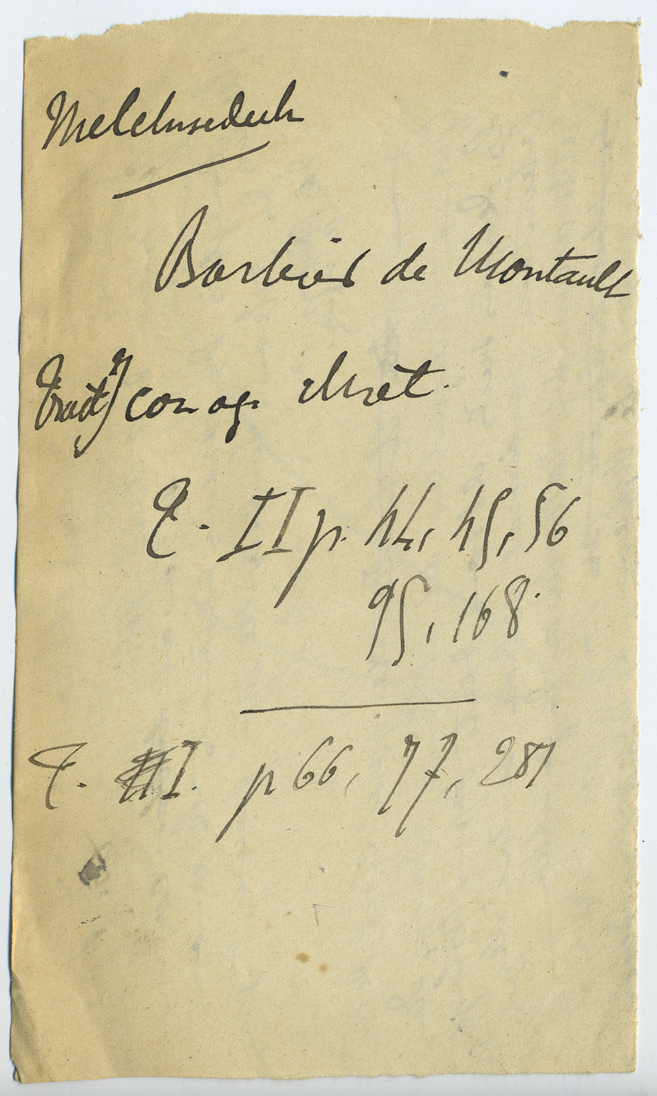 Melchisedech
Barbier de Montault
Traité d'Iconog. chrét.
T. II p. 44, 45, 56
95, 168.
T. I. p 66, 77, 287